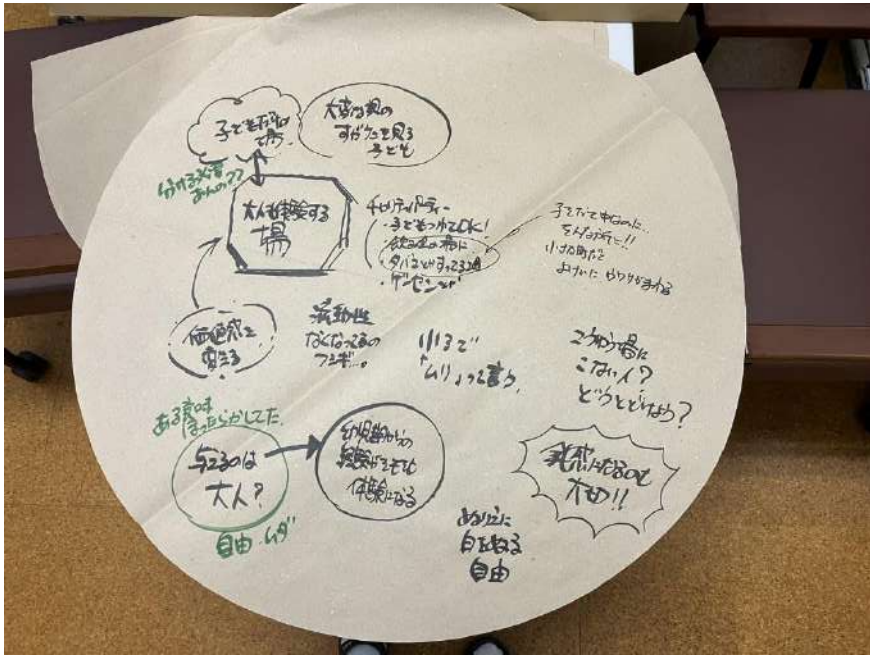 子どもだけの
場
大変な親の
すがたを見る
子ども
分ける必要
あんの??
大人も体験する
場
チャリティパーティー
・子どもつれてOK!
・飲み屋の場に
・タバコとかすってる場
・ゲーセンとか
子そだて中なのに…
そんな所に!!
小さな町だと
よけいに ウワサがまわる
価値感を
変える
流動性
なくなってるの
フシギ…。
小3で
ムリょって言う。
こうゆう場に
こない人?
どうとどけよう?
ある意味
ほったらかしてた。
与えるのは
大人?
自由・ムダ
幼児期からの
経験がそもそも
体験になる
発想になるのも
大切!!
ぬりえに
白を塗る
自由